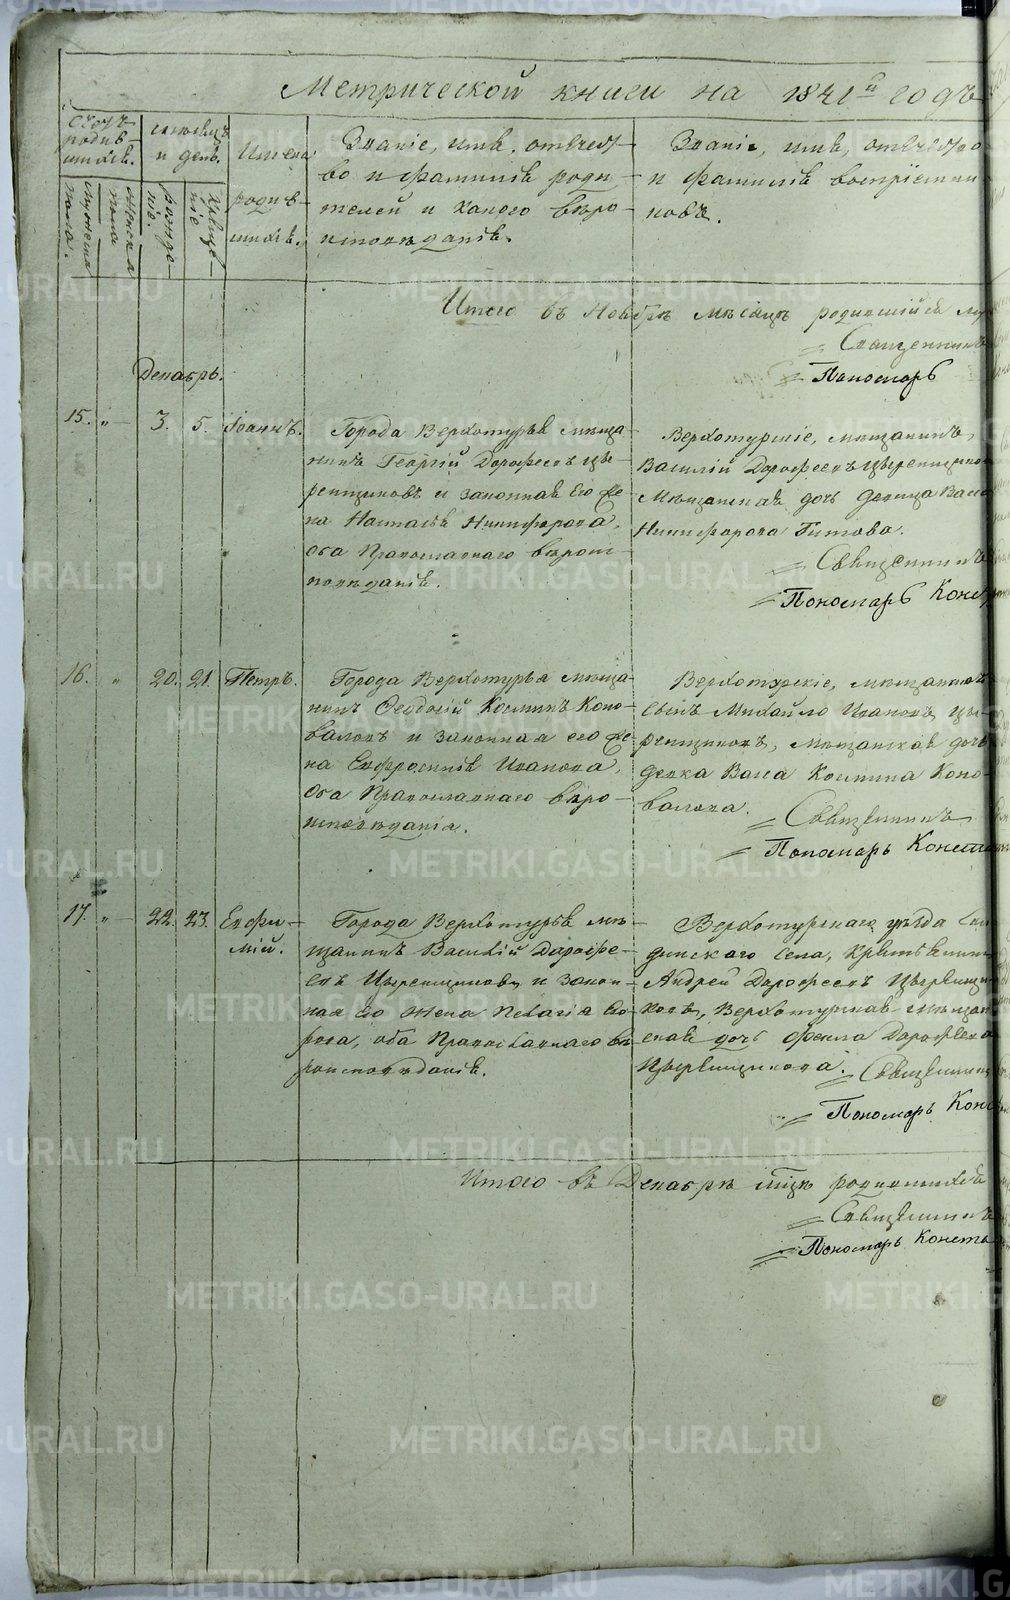 Метрической книги на 1841й годъ
Счетъ родив- шихся.
месяцъ и день.
Имена родив- шихся.
Званіе, имя, отчест- во и фамилія роди- телей и какого веро- исповѣданія.
Званіе, имя, отчество и фамилія воспріемни- ковъ.
Мужеска пола.
Женска пола
рожде- ніе.
креще- ніе
Итого въ Ноябрѣ мѣсяцѣ родившійся
Священникъ
Пономарь
Декабрь.
15. " 3. 5. Іоаннъ.
Города Верхотурья мѣща-
нинъ Георгій Дорофеевъ Цы-
ренщиковъ и законная его же-
на Настасья Никифорова,
оба Православнаго вѣроис-
повѣданія.
Верхотурскіе, мѣщанинъ
Василій Дорофеевъ Цыренщиков
Мѣщанская дочь девица Васса
Никифорова Титова.
Священникъ
Пономарь Конс
16. " 20. 21. Петръ.
Города Верхотурья мѣща-
нинъ Ѳеодосій Косминъ Коно-
валовъ и законная его же-
на Евфросинія Иванова,
оба Православнаго вѣро-
исповѣданія.
Верхотурскіе, мѣщанинъ
сынъ Михайло Ивановъ Цы-
ренщиковъ, мѣщанская дочь
девка Васса Космина Коно-
валова.
Священникъ
Пономарь Конста
17. " 22. 23. Евфи-
мій.
Города Верхотурья мѣ-
щанинъ Василій Дорофе-
евъ Цыренщиковъ и закон-
ная его жена Пелагія
рова, оба Православнаго вѣ-
роисповѣданія.
Верхотурскаго уѣзда
динского села, Крестьянин
Андрей Дорофеевъ Цыренщи-
ковъ, Верхотурская мѣщан
ская дочь Фекла Дорофеева
Цыренщикова.
Священникъ
Пономарь Конс
Итого въ Декабрѣ мцѣ родившихся
Священникъ
Пономарь Конста
METRIKI.GASO-URAL.RU